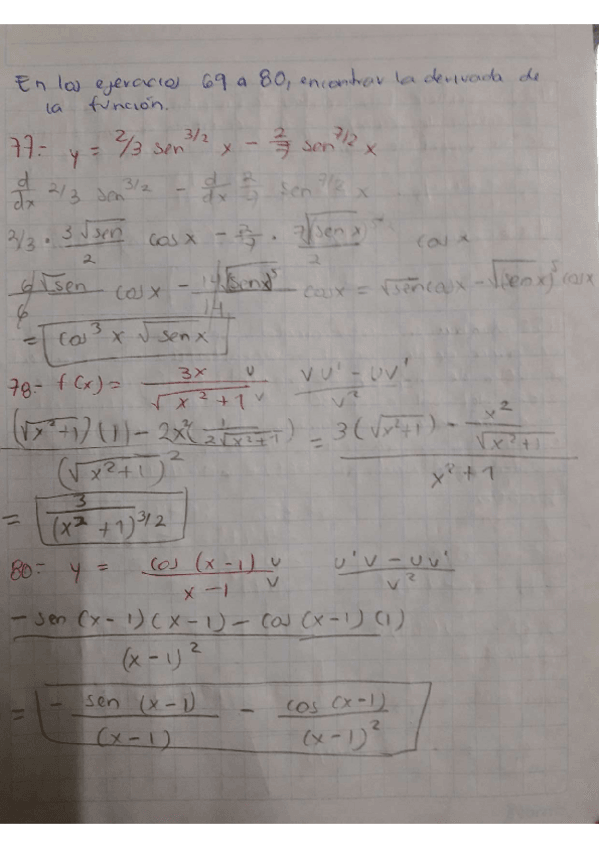 En los ejercicios 69 a 80, encontrar la derivada de
la función.
77.- y = 2/3 sen^{3/2} x - 2/7 sen^{7/2} x
d/dx 2/3 sen^{3/2} - d/dx 2/7 sen^{7/2} x
2/3 · 3√sen/2 cos x - 2/7 · 7√(sen x)^5/2 cos x
6√sen/6 cos x - 14√(sen x)^5/14 cos x = √sen cos x - √(sen x)^5 cos x
= cos^3 x √sen x
78.- f(x) = 3x/√x^2+1 u v v u' - u v'/v^2
(√x^2+1)(1) - 2x^2(1/2√x^2+1)/(√x^2+1)^2 = 3(√x^2+1) - x^2/√x^2+1/x^2+1
= 3/(x^2+1)^{3/2}
80- y = cos (x-1)/x-1 u v u'v - u v'/v^2
- sen (x-1)(x-1) - cos (x-1)(1)/(x-1)^2
= - sen (x-1)/(x-1) - cos (x-1)/(x-1)^2